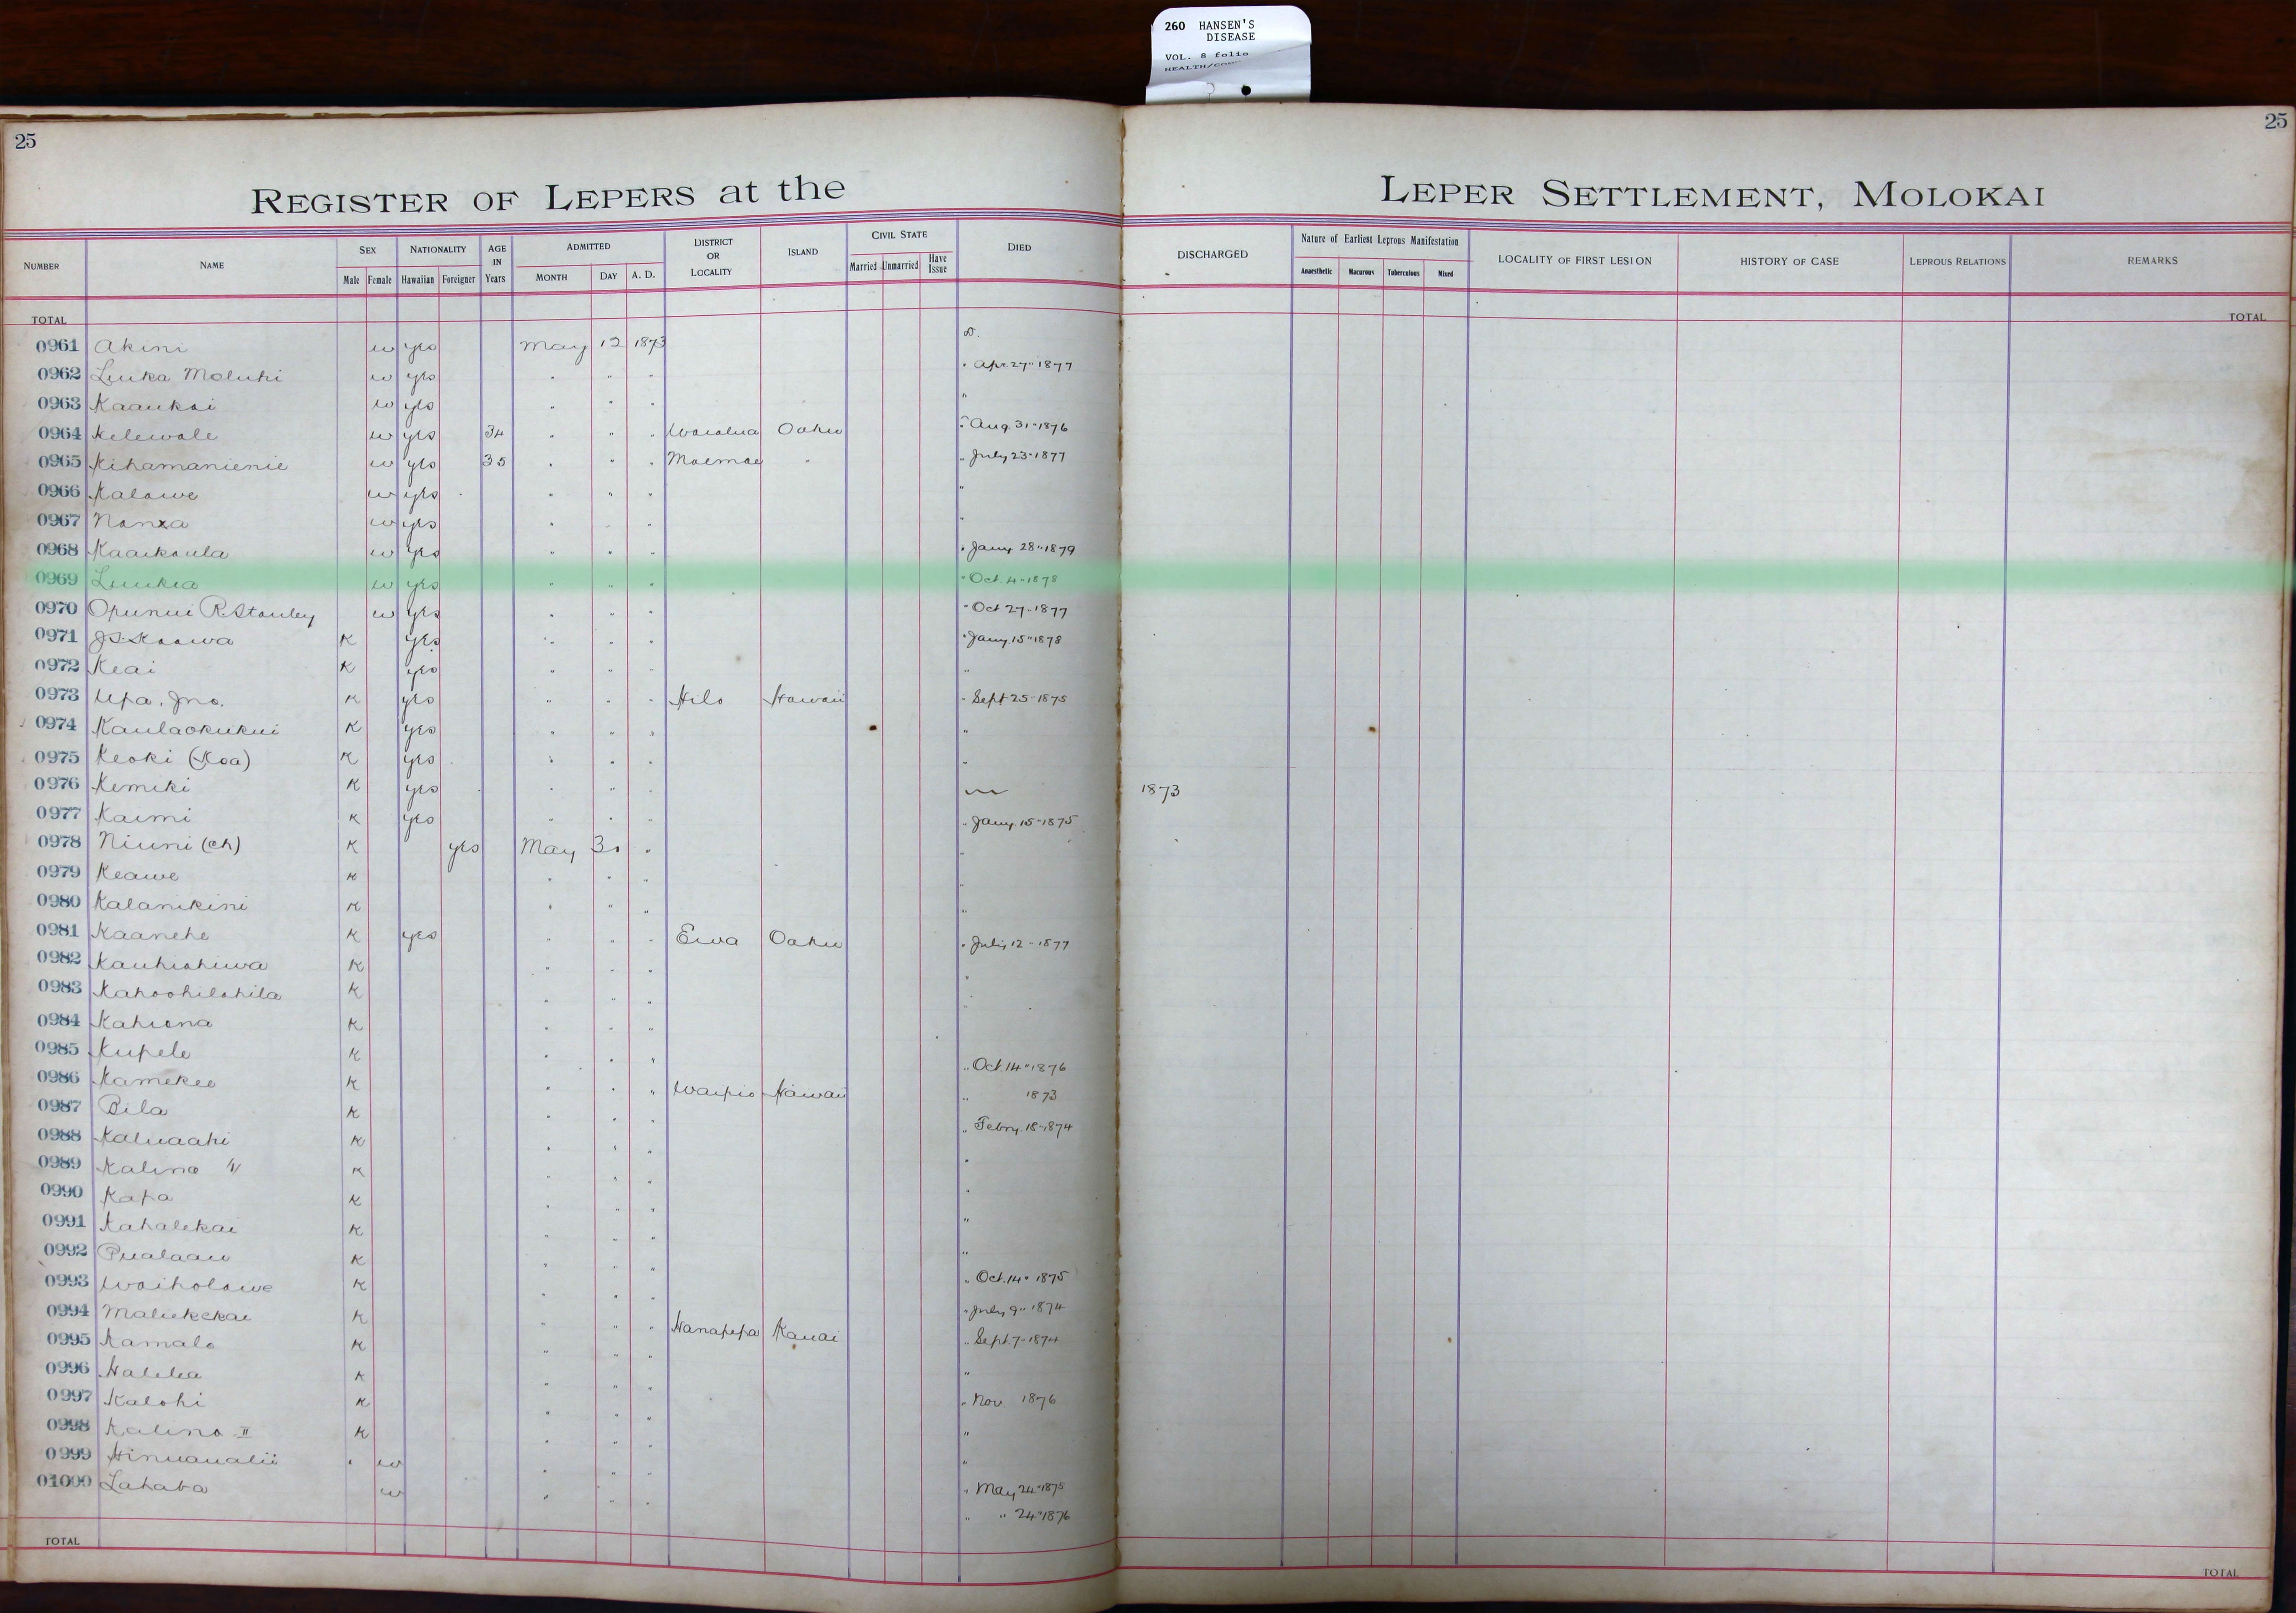 260 HANSEN'S
DISEASE
VOL. 8 folio
25
25
REGISTER OF LEPERS at the LEPER SETTLEMENT, MOLOKAI
NUMBER NAME SEX NATIONALITY AGE IN Years ADMITTED DISTRICT OR LOCALITY ISLAND CIVIL STATE DIED DISCHARGED Nature of Earliest Leprous Manifestation LOCALITY OF FIRST LESION HISTORY OF CASE LEPROUS RELATIONS REMARKS
Male Female Hawaiian Foreigner MONTH DAY A. D. Married Unmarried Have Issue Anaesthetic Macurous Tuberculous Mixed
TOTAL TOTAL
0961 Akini w yes May 12 1873 D.
0962 Luika Moluhi w yes " " " " Apr. 27" 1877
0963 Kaaukai w yes " " " "
0964 Kelewale w yes 34 " " " Waialua Oahu " Aug. 31" 1876
0965 Kihamanienie w yes 35 " " " Moemoe " " July 23" 1877
0966 Kalawe w yes " " " "
0967 w yes " " " "
0968 Kaaikaula w yes " " " " Jany. 28" 1879
0969 Luukia w yes " " " " Oct. 4" 1878
0970 Opunui R. Stanley w yes " " " " Oct 27" 1877
0971 J.S. Kaawa K yes " " " " Jany. 15" 1878
0972 Keai K yes " " " "
0973 Upa. Jno. K yes " " " Hilo Hawaii " Sept 25" 1875
0974 Kaulaokukui K yes " " " "
0975 Keoki (Koa) K yes " " " "
0976 Kemiki K yes " " " 1873
0977 Kaimi K yes " " " " Jany. 15" 1875
0978 Niuni (Ch) K yes May 30 " "
0979 Keawe K " " " "
0980 Kalanikini K " " " "
0981 Kaanehe K yes " " " Ewa Oahu " July 12" 1877
0982 Kauhiahiwa K " " " "
0983 Kahoohilahila K " " " "
0984 Kahiona K " " "
0985 Kupele K " " " " Oct. 14" 1876
0986 Kamekeo K " " " Waipio Hawaii " 1873
0987 Bila K " " " " Febry. 18" 1874
0988 Kaluaahi K " " " "
0989 Kalino K " " " "
0990 Kapa K " " " "
0991 Kahalekai K " " " "
0992 Pualaau K " " " " Oct. 14" 1875
0993 Waiholowe K " " " " July 9" 1874
0994 Maliekekai K " " " Hanapepa Kauai " Sept. 7" 1874
0995 Kamalo K " " " "
0996 Halelea K " " " " Nov. 1876
0997 Kalohi K " " " "
0998 Kalino II K " " " "
0999 Hinuaualii w " " " " May 24" 1875
01000 Lahaba w " " " " " 24" 1876
TOTAL TOTAL